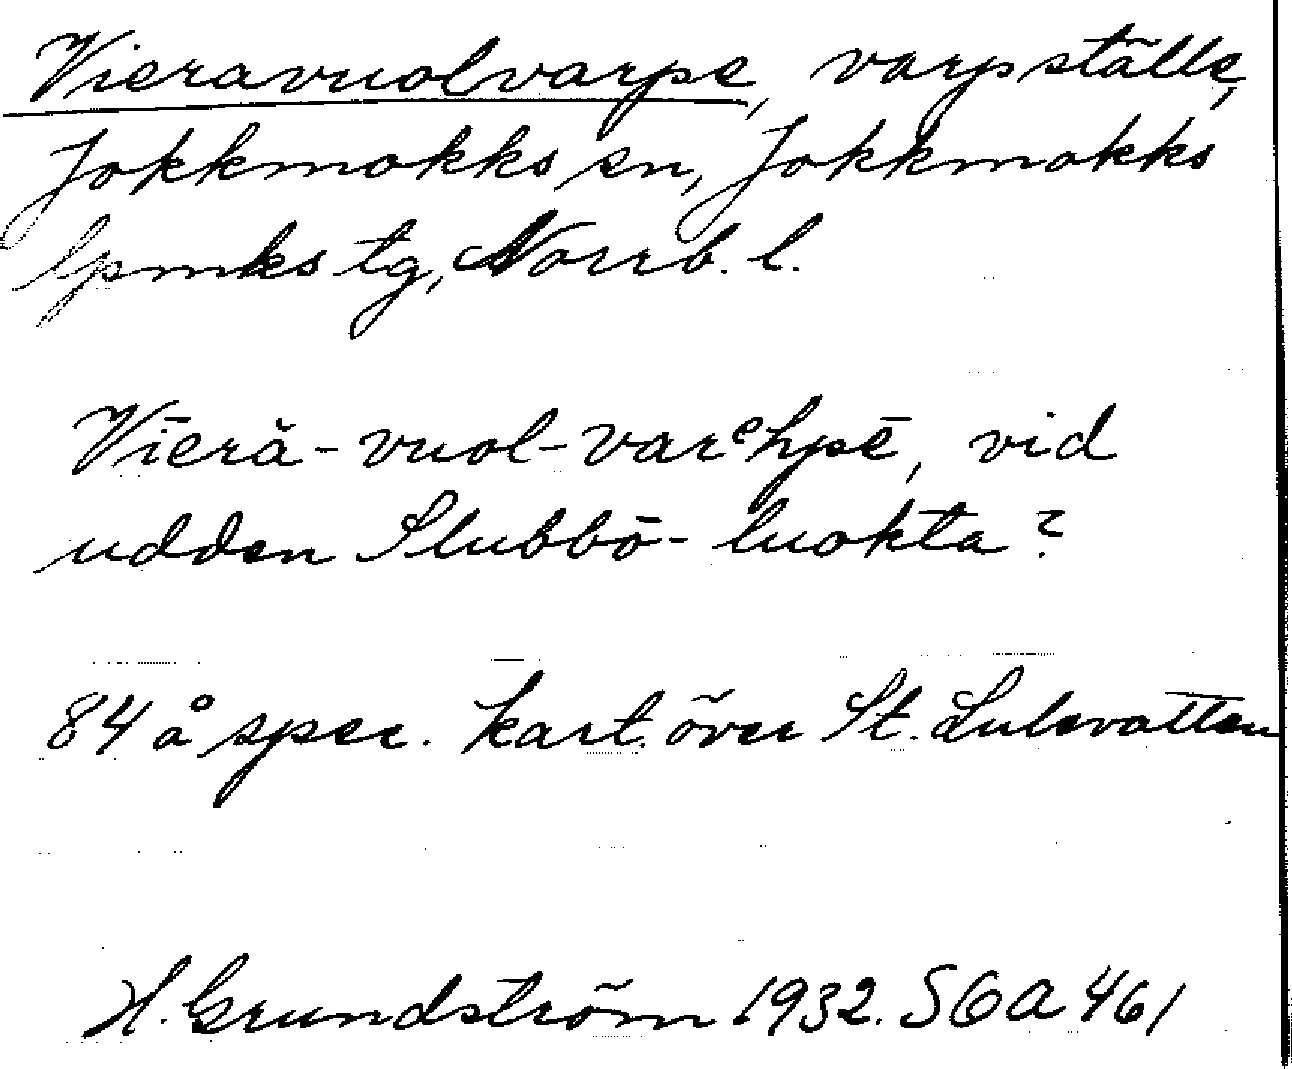 Vieravuolvarpe, varpställe,
Jokkmokks sn, Jokkmokks
lpmks tg, Norrb. l.
Vīerȧ-vuol-varᵉhpē, vid
udden Slubbō-luokta?
84 å spec. kart. över St. Lulevatten
H. Grundström 1932. SOA 461